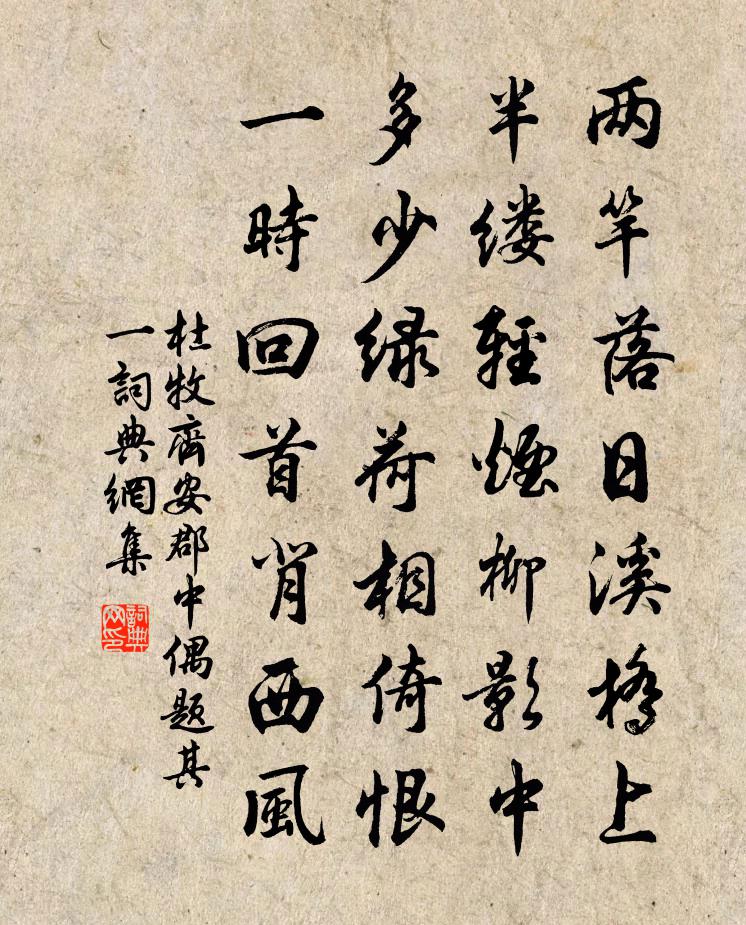 两竿落日溪橋上
半缕輕煙柳影中
多少绿荷相倚恨
一時回首背西風
杜牧齊安郡中偶题其
一詞典網集
詞典网印